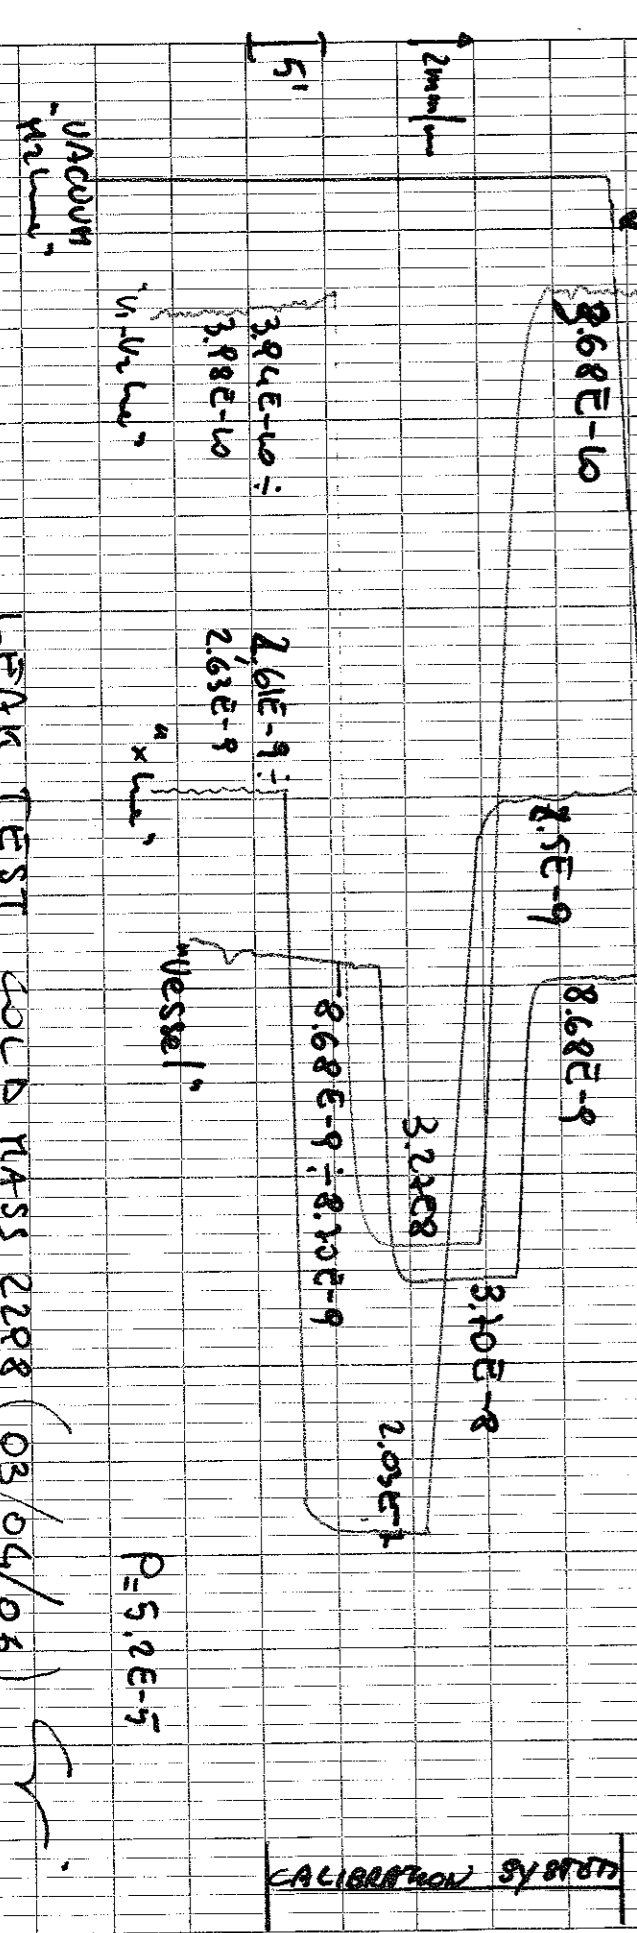 2mm/m
5'
"VACUUM
H2 line"
8.68E-10
3.94E-10 ÷
3.98E-10
"V1-V2 line"
2.61E-9 ÷
2.63E-9
"x line"
8.5E-9
8.68E-9
"Vessel"
8.68E-9 ÷ 8.70E-9
3.27E8
3.10E-8
2.03E-7
P=5,2E-5
LEAK TEST COLD MASS 2298 (03/04/06)
CALIBRATION SYSTEM